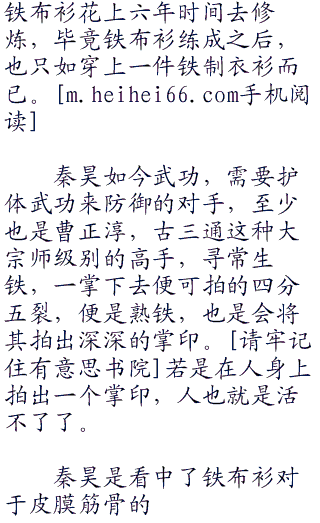 铁布衫花上六年时间去修
炼，毕竟铁布衫练成之后，
也只如穿上一件铁制衣衫而
已。[m.heihei66.com手机阅
读]
秦昊如今武功，需要护
体武功来防御的对手，至少
也是曹正淳，古三通这种大
宗师级别的高手，寻常生
铁，一掌下去便可拍的四分
五裂，便是熟铁，也是会将
其拍出深深的掌印。[请牢记
住有意思书院]若是在人身上
拍出一个掌印，人也就是活
不了了。
秦昊是看中了铁布衫对
于皮膜筋骨的